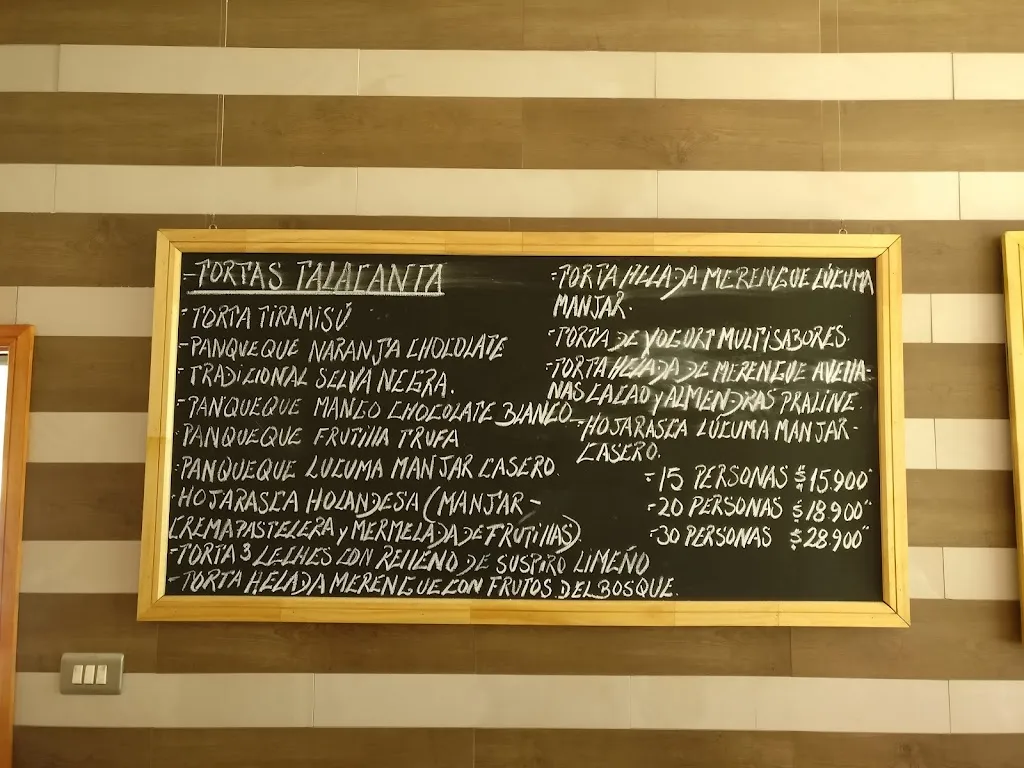 -TORTAS TALACANTA
-TORTA TIRAMISÚ
-PANQUEQUE NARANJA CHOCOLATE
-TRADICIONAL SELVA NEGRA.
-PANQUEQUE MANGO CHOCOLATE BLANCO
-PANQUEQUE FRUTILLA TRUFA
-PANQUEQUE LUCUMA MANJAR CASERO
-HOJARASCA HOLANDESA (MANJAR-
CREMA PASTELERA y MERMELADA DE FRUTILLAS)
-TORTA 3 LECHES CON RELLENO DE SUSPIRO LIMEÑO
-TORTA HELADA MERENGUE CON FRUTOS DEL BOSQUE.
-TORTA HELADA MERENGUE LÚCUMA
MANJAR.
-TORTA DE YOGURT MULTISABORES.
-TORTA HELADA DE MERENGUE AVELLA-
NAS CACAO y ALMENDRAS PRALINE.
-HOJARASCA LÚCUMA MANJAR-
CASERO.
-15 PERSONAS $15.900"
-20 PERSONAS $18.900"
-30 PERSONAS $28.900"